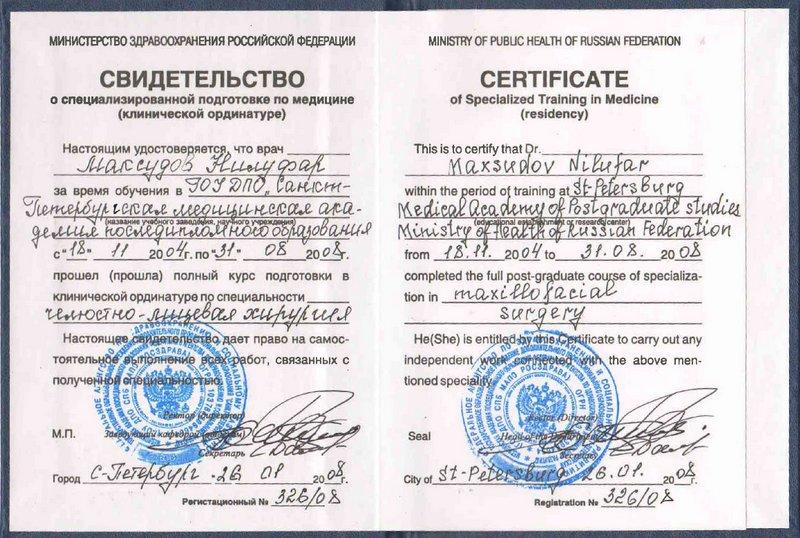 МИНИСТЕРСТВО ЗДРАВООХРАНЕНИЯ РОССИЙСКОЙ ФЕДЕРАЦИИ
СВИДЕТЕЛЬСТВО
о специализированной подготовке по медицине
(клинической ординатуре)
Настоящим удостоверяется, что врач
Максудов Нилуфар
за время обучения в ГОУ ДПО „Санкт-
Петербургская медицинская ака-
(название учебного заведения, научного учреждения)
демия последипломного образования
с "18" 11 2004г. по "31" 08 2008г.
прошел (прошла) полный курс подготовки в
клинической ординатуре по специальности
челюстно-лицевая хирургия
Настоящее свидетельство дает право на самос-
тоятельное выполнение всех работ, связанных с
полученной специальностью.
Ректор (директор)
М.П. Заведующий кафедрой
Секретарь
Город С-Петербург 26 01 2008г.
Регистационный № 326/08
MINISTRY OF PUBLIC HEALTH OF RUSSIAN FEDERATION
CERTIFICATE
of Specialized Training in Medicine
(residency)
This is to certify that Dr.
Maxsudov Nilufar
within the period of training at St-Petersburg
Medical Academy of Postgraduate studies
(educational establishment or research center)
Ministry of Health of Russian Federation
from 18.11. 2004 to 31.08. 2008
completed the full post-graduate course of specializa-
tion in maxillofacial
surgery
He(She) is entitled by this Certificate to carry out any
independent work connected with the above men-
tioned speciality
Rector (Director)
Seal Head of the Department
Secretary
City of St-Petersburg 26.01. 2008
Registration № 326/08